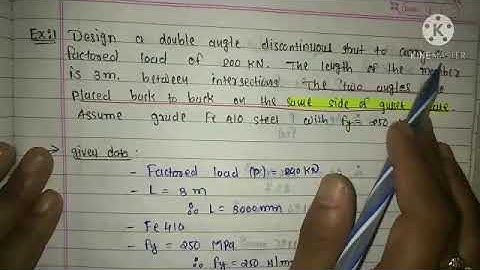 Ex:1 Design a double angle discontinuous strut to carry
factored load of 200 KN. The length of the member
is 3m. between intersections The two angles
placed back to back on the same side of gusset
Assume grade Fe 410 steel with fy = 250
→ given data :
- Factored load (P) = 200 KN
- L = 3 m
∴ L = 3000mm
- Fe 410
- fy = 250 MPa
∴ fy = 250 N/mm
KINEMASTER